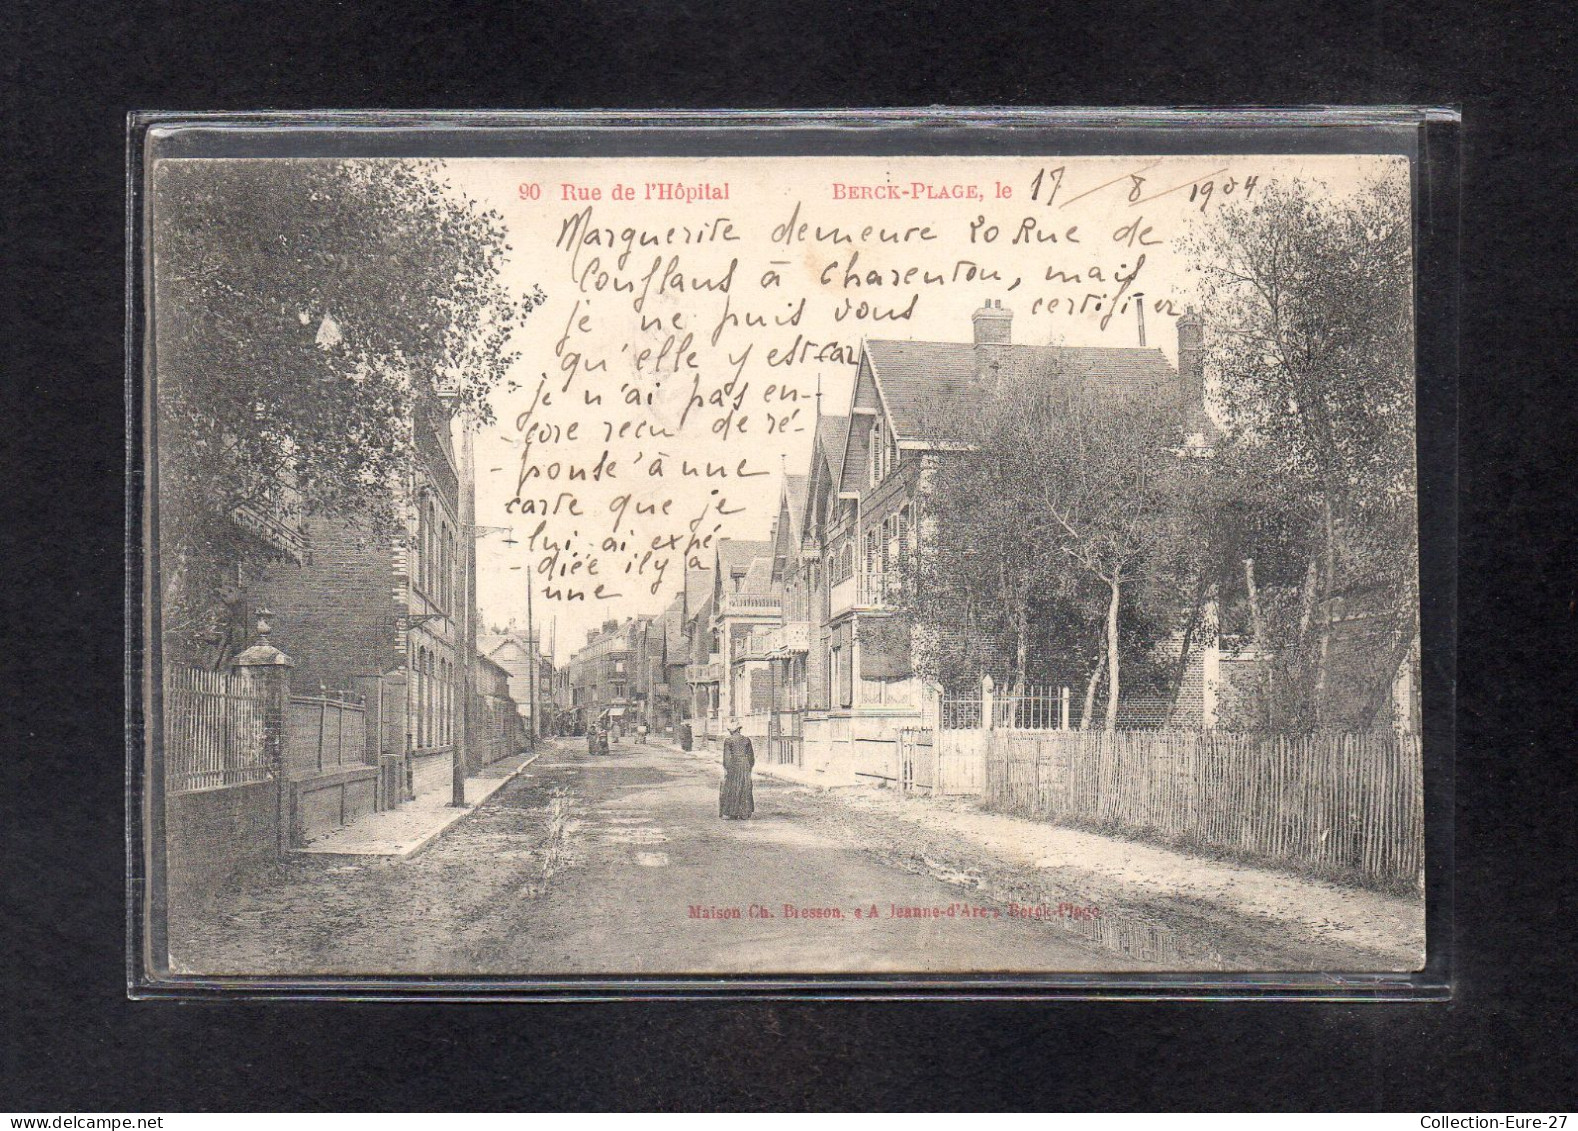 90 Rue de l'Hôpital BERCK-PLAGE, le 17 - 8 - 1904
Marguerite demeure 20 Rue de
Conflans à Charenton, mais
je ne puis vous certifier
qu'elle y est car
je n'ai pas en-
- core reçu de ré-
- ponse à une
carte que je
- lui ai expé-
- diée il y a
une
Maison Ch. Bresson, « A Jeanne-d'Arc » Berck-Plage
Collection-Eure-27